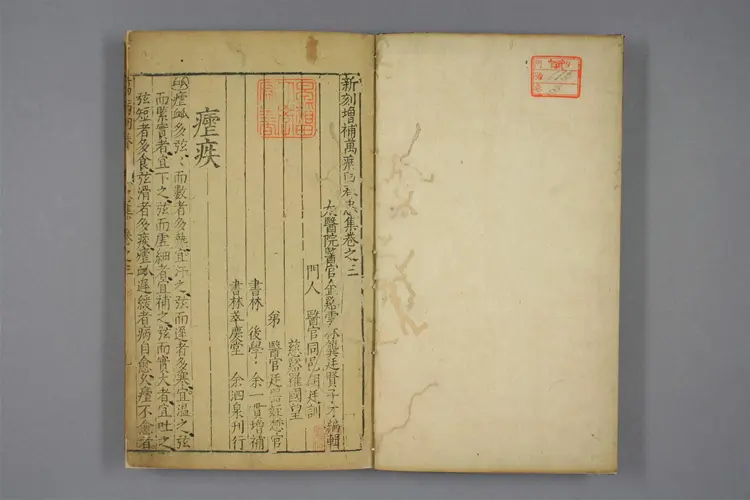 新刻增補萬病回春
集卷之三
太醫院醫官金谿雲林龔廷賢子才編輯
門人 醫官同邑胡廷訓
慈谿羅國望
弟 醫官廷器
書林 後學 余一貫增補
書林萃慶堂 余泗泉刊行
瘧疾
瘧脉多弦弦而數者多熱宜汗之弦而遲者多寒宜溫之弦
而緊實者宜下之弦而虛細者宜補之弦而實大者宜吐之
弦短者多食弦滑者多痰瘧脉遲緩者病自愈久瘧不愈者